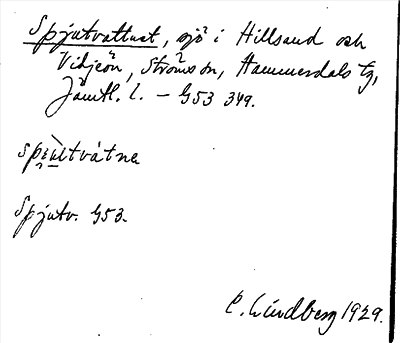 Spjutvattnet, sjö i Hillsand och
Vidjeön, Ströms sn, Hammerdals tg,
Jämtl. l. – G53 349.
spi̯ùtvátnɐ
Spjutv. G53.
C. Lindberg 1929.